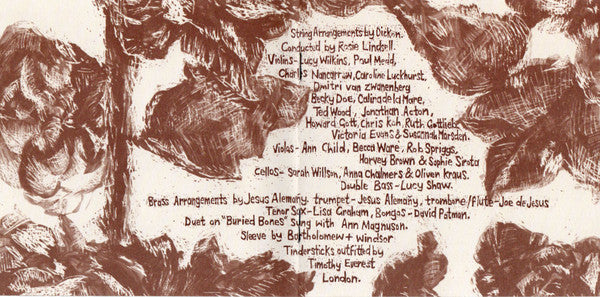 String Arrangements by Dickon.
Conducted by Rosie Lindsell.
Violins-Lucy Wilkins, Paul Medd,
Charles Nancarrow, Caroline Luckhurst,
Dmitri van Zwanenberg
Becky Doe, Calina de la Mare,
Ted Wood, Jonathan Acton,
Howard Gott, Chris Koh, Ruth Gottlieb,
Victoria Evans & Susannah Marsden.
Violas-Ann Child, Becca Ware, Rob Spriggs,
Harvey Brown & Sophie Sirota
Cellos- Sarah Willson, Anna Chalmers & Oliver Kraus.
Double Bass-Lucy Shaw.
Brass Arrangements by Jesus Alemañy. trumpet-Jesus Alemañy, trombone/flute-Joe de Jesus
Tenor Sax-Lisa Graham, Bongos-David Patman.
Duet on "Buried Bones" sung with Ann Magnuson.
Sleeve by Bartholomew + Windsor
Tindersticks outfitted by
Timothy Everest
London.